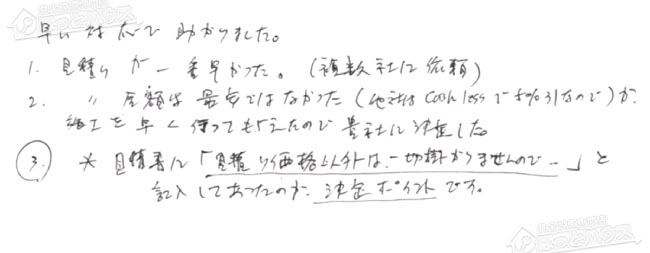 早い対応で助かりました。
1. 見積りが一番早かった。(複数社に依頼)
2. 〃 金額は最安ではなかった(他社はcash lessで5%引なので)が、
細工を早く行ってもらえたので貴社に決定した。
③ * 見積書に「見積り価格以外は、一切掛かりませんので…」と
記入してあったのが、決定ポイントです。